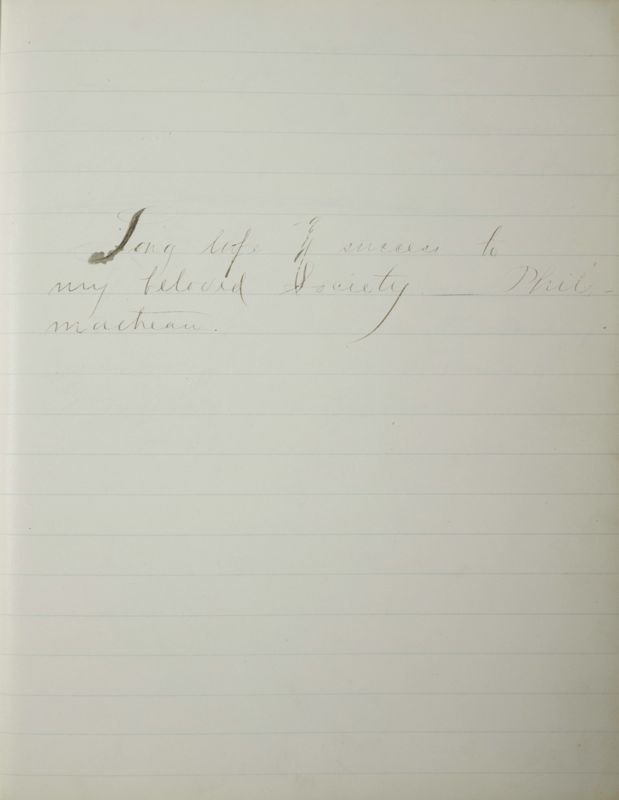 Long life & success to
my beloved Society — Phil-
mathean.